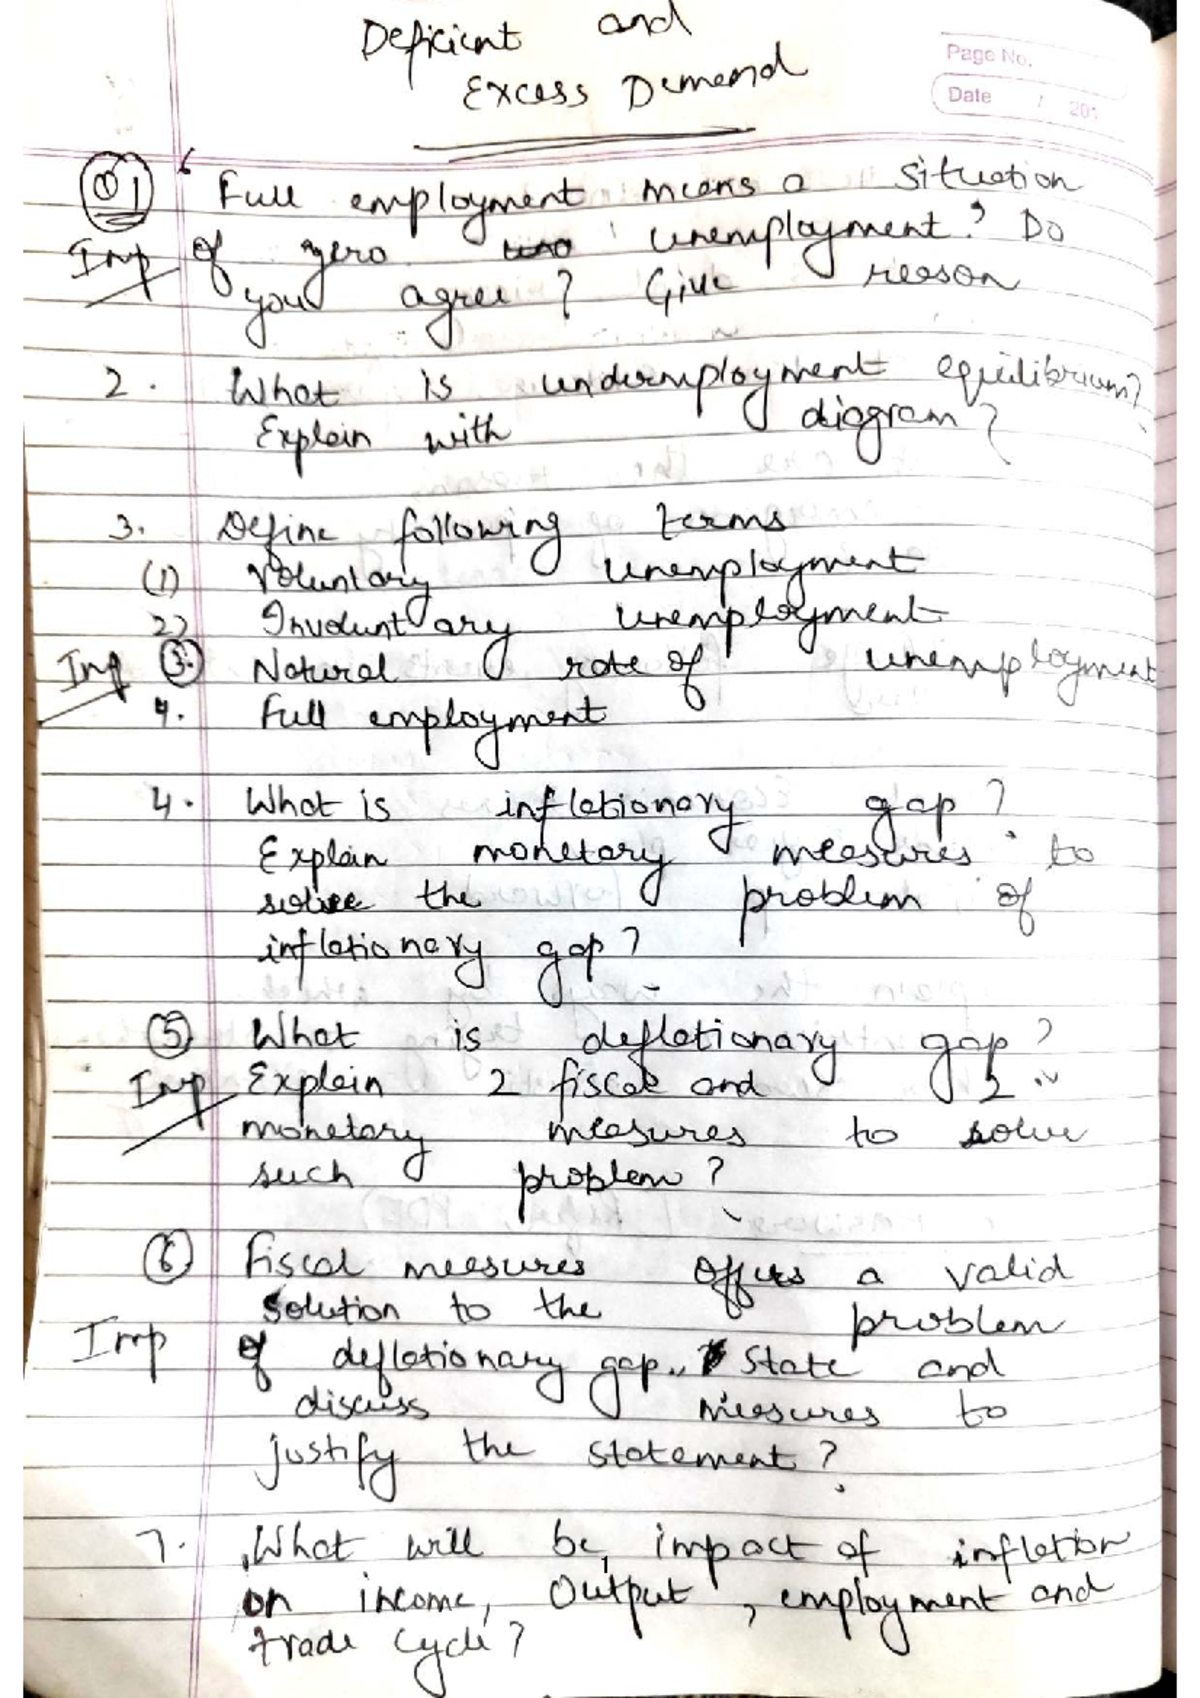 Deficient and
Excess Demand
Page No.
Date / 201
Q1 Full employment means a situation
Imp of zero unemployment? Do
you agree? Give reason
2. What is underemployment equilibrium?
Explain with diagram?
3. Define following terms
(1) Voluntary unemployment
2) Involuntary unemployment
Imp 3. Natural rate of unemployment
4. Full employment
4. What is inflationary gap?
Explain monetary measures to
solve the problem of
inflationary gap?
5 What is deflationary gap?
Imp Explain 2 fiscal and 2
monetary measures to solve
such problem?
6 Fiscal measures offers a valid
solution to the problem
Imp of deflationary gap.. State and
discuss measures to
justify the statement?
7. What will be impact of inflation
on income, Output, employment and
trade cycle?